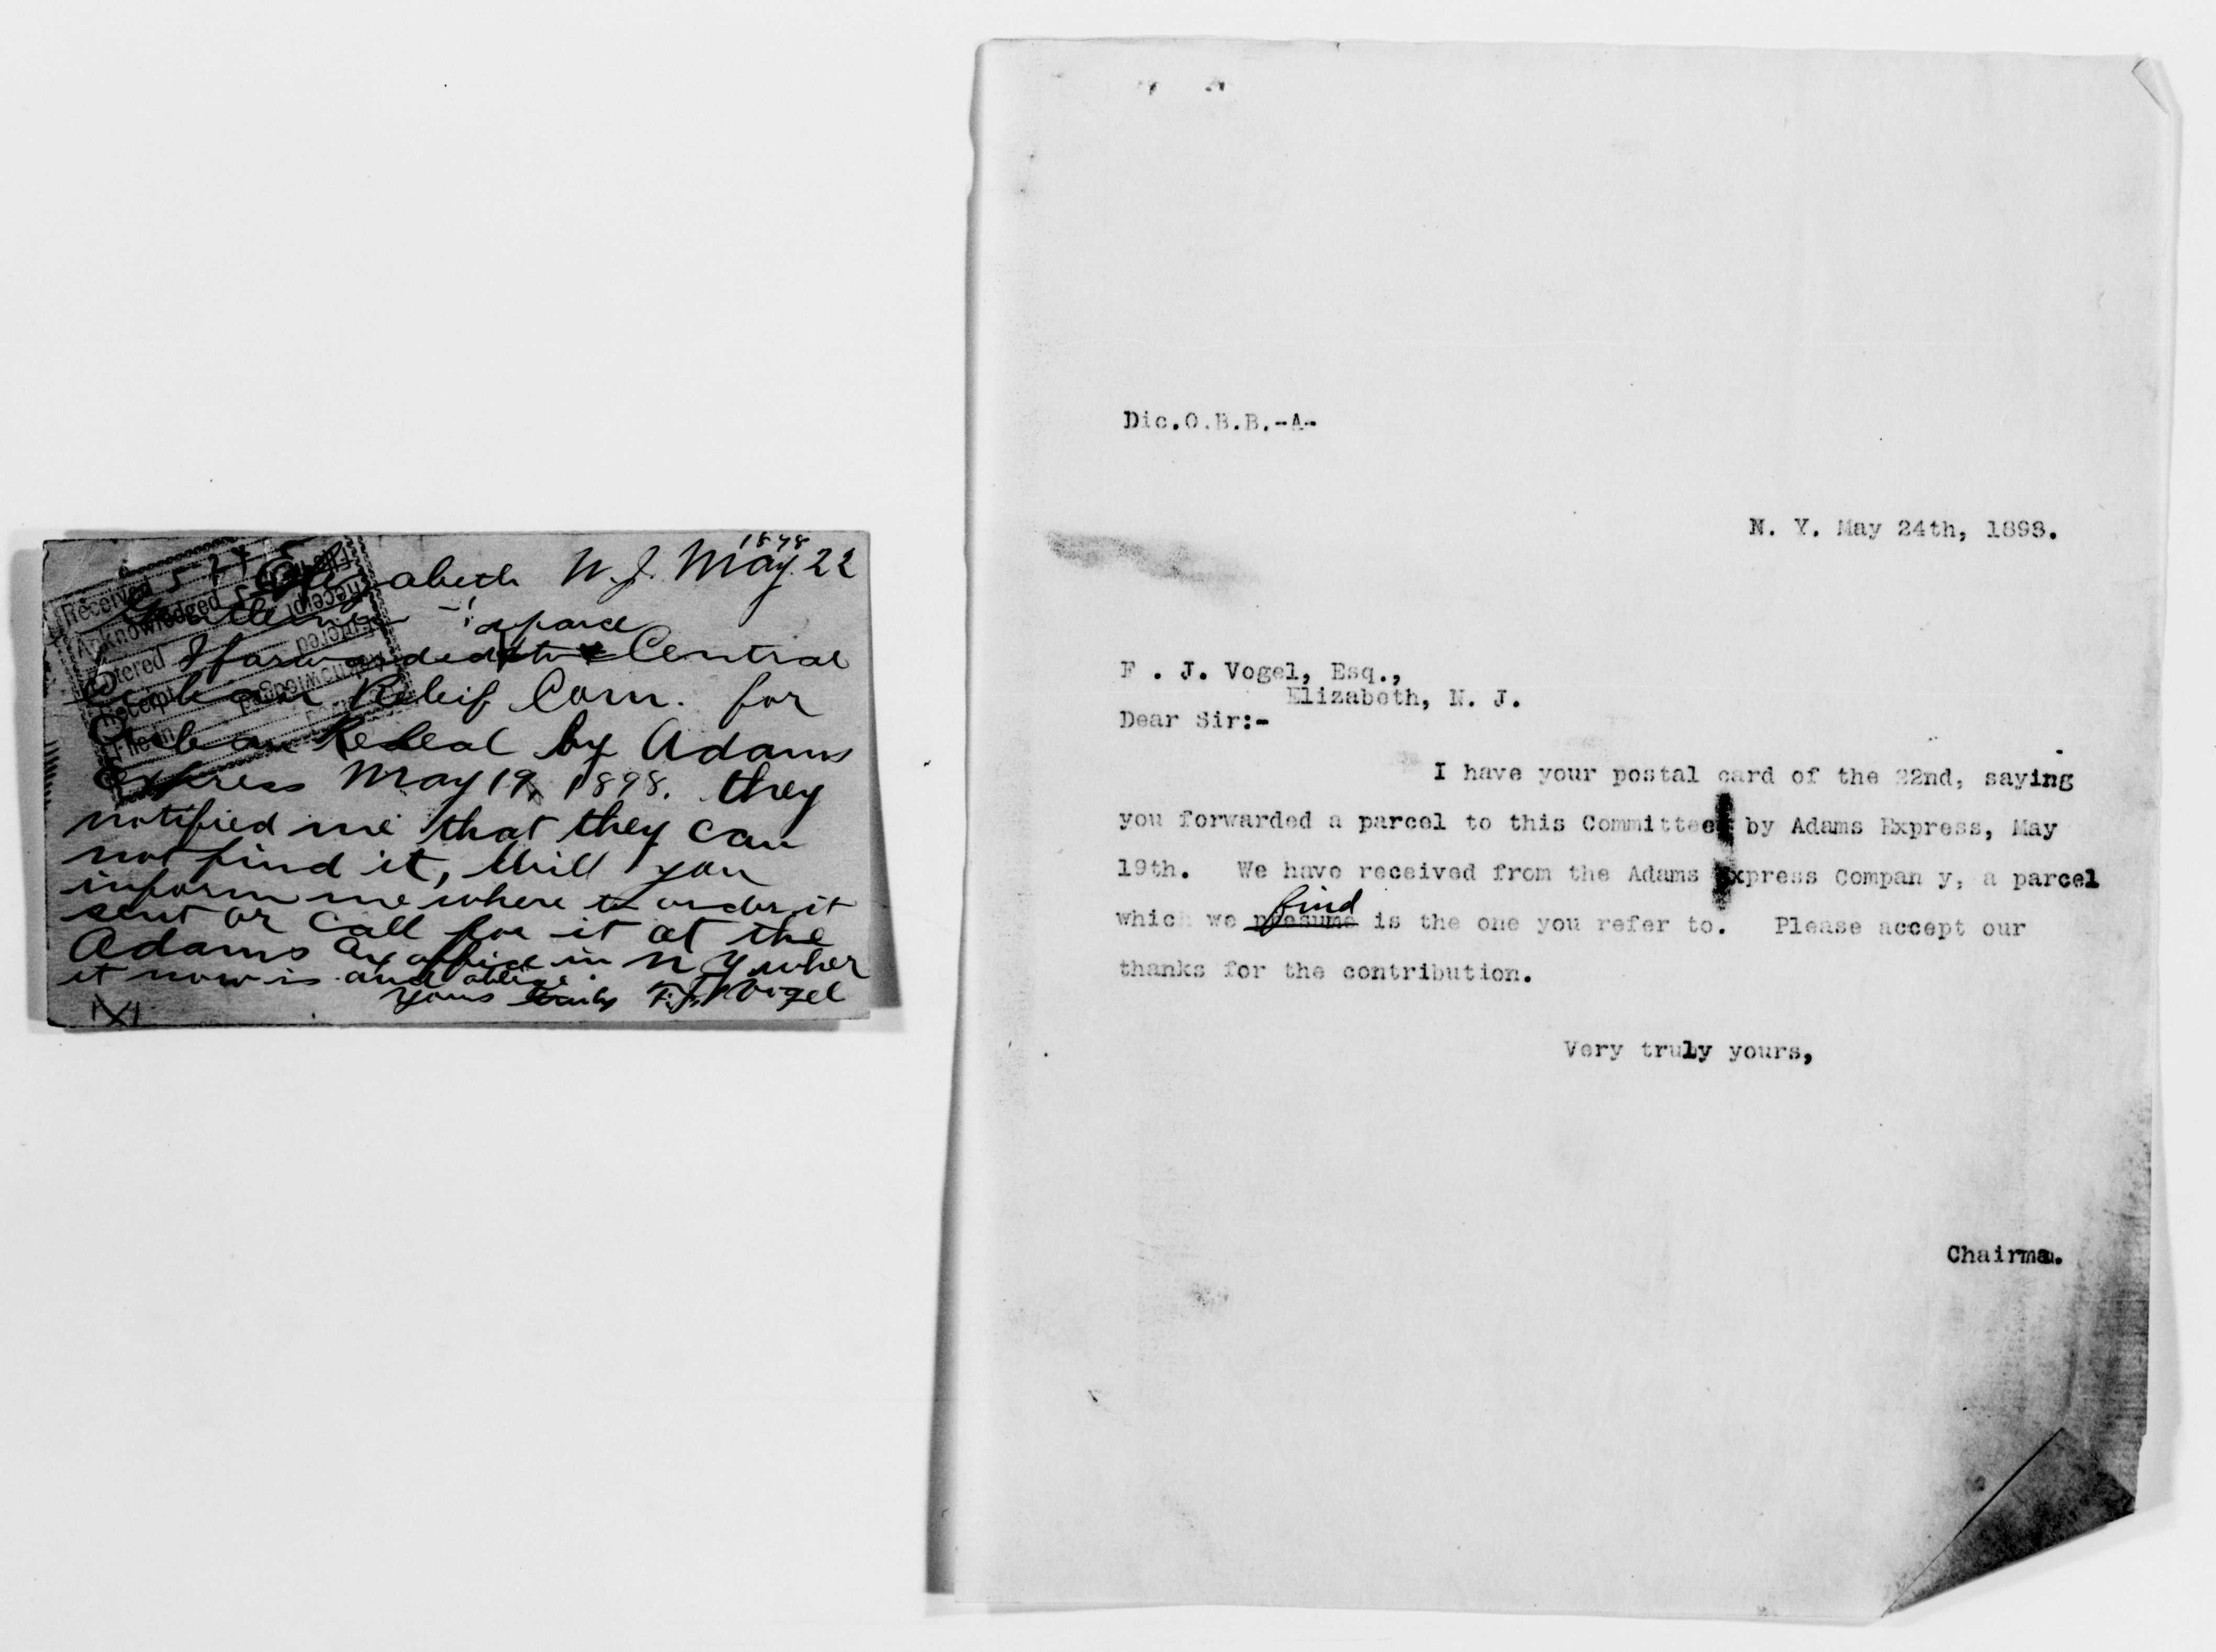 1898
Elizabeth N.J. May 22
Gentlemen
a parcel
I forwarded to Central
Cuban Releif Com. for
Cuban Releaf by Adams
Express May 19, 1898. they
notified me that they can
not find it, Will you
inform me where to order it
sent or call for it at the
Adams Ex office in N Y wher
it now is and oblige
yours Truly F. J. Vogel
Received 5 24
Acknowledged 5
Entered
Receipt
File
Dic.O.B.B.-A-
N. Y. May 24th, 1898.
F . J. Vogel, Esq.,
Elizabeth, N. J.
Dear Sir:-
I have your postal card of the 22nd, saying
you forwarded a parcel to this Committee by Adams Express, May
19th. We have received from the Adams Express Compan y, a parcel
find
which we presume is the one you refer to. Please accept our
thanks for the contribution.
Very truly yours,
Chairma.